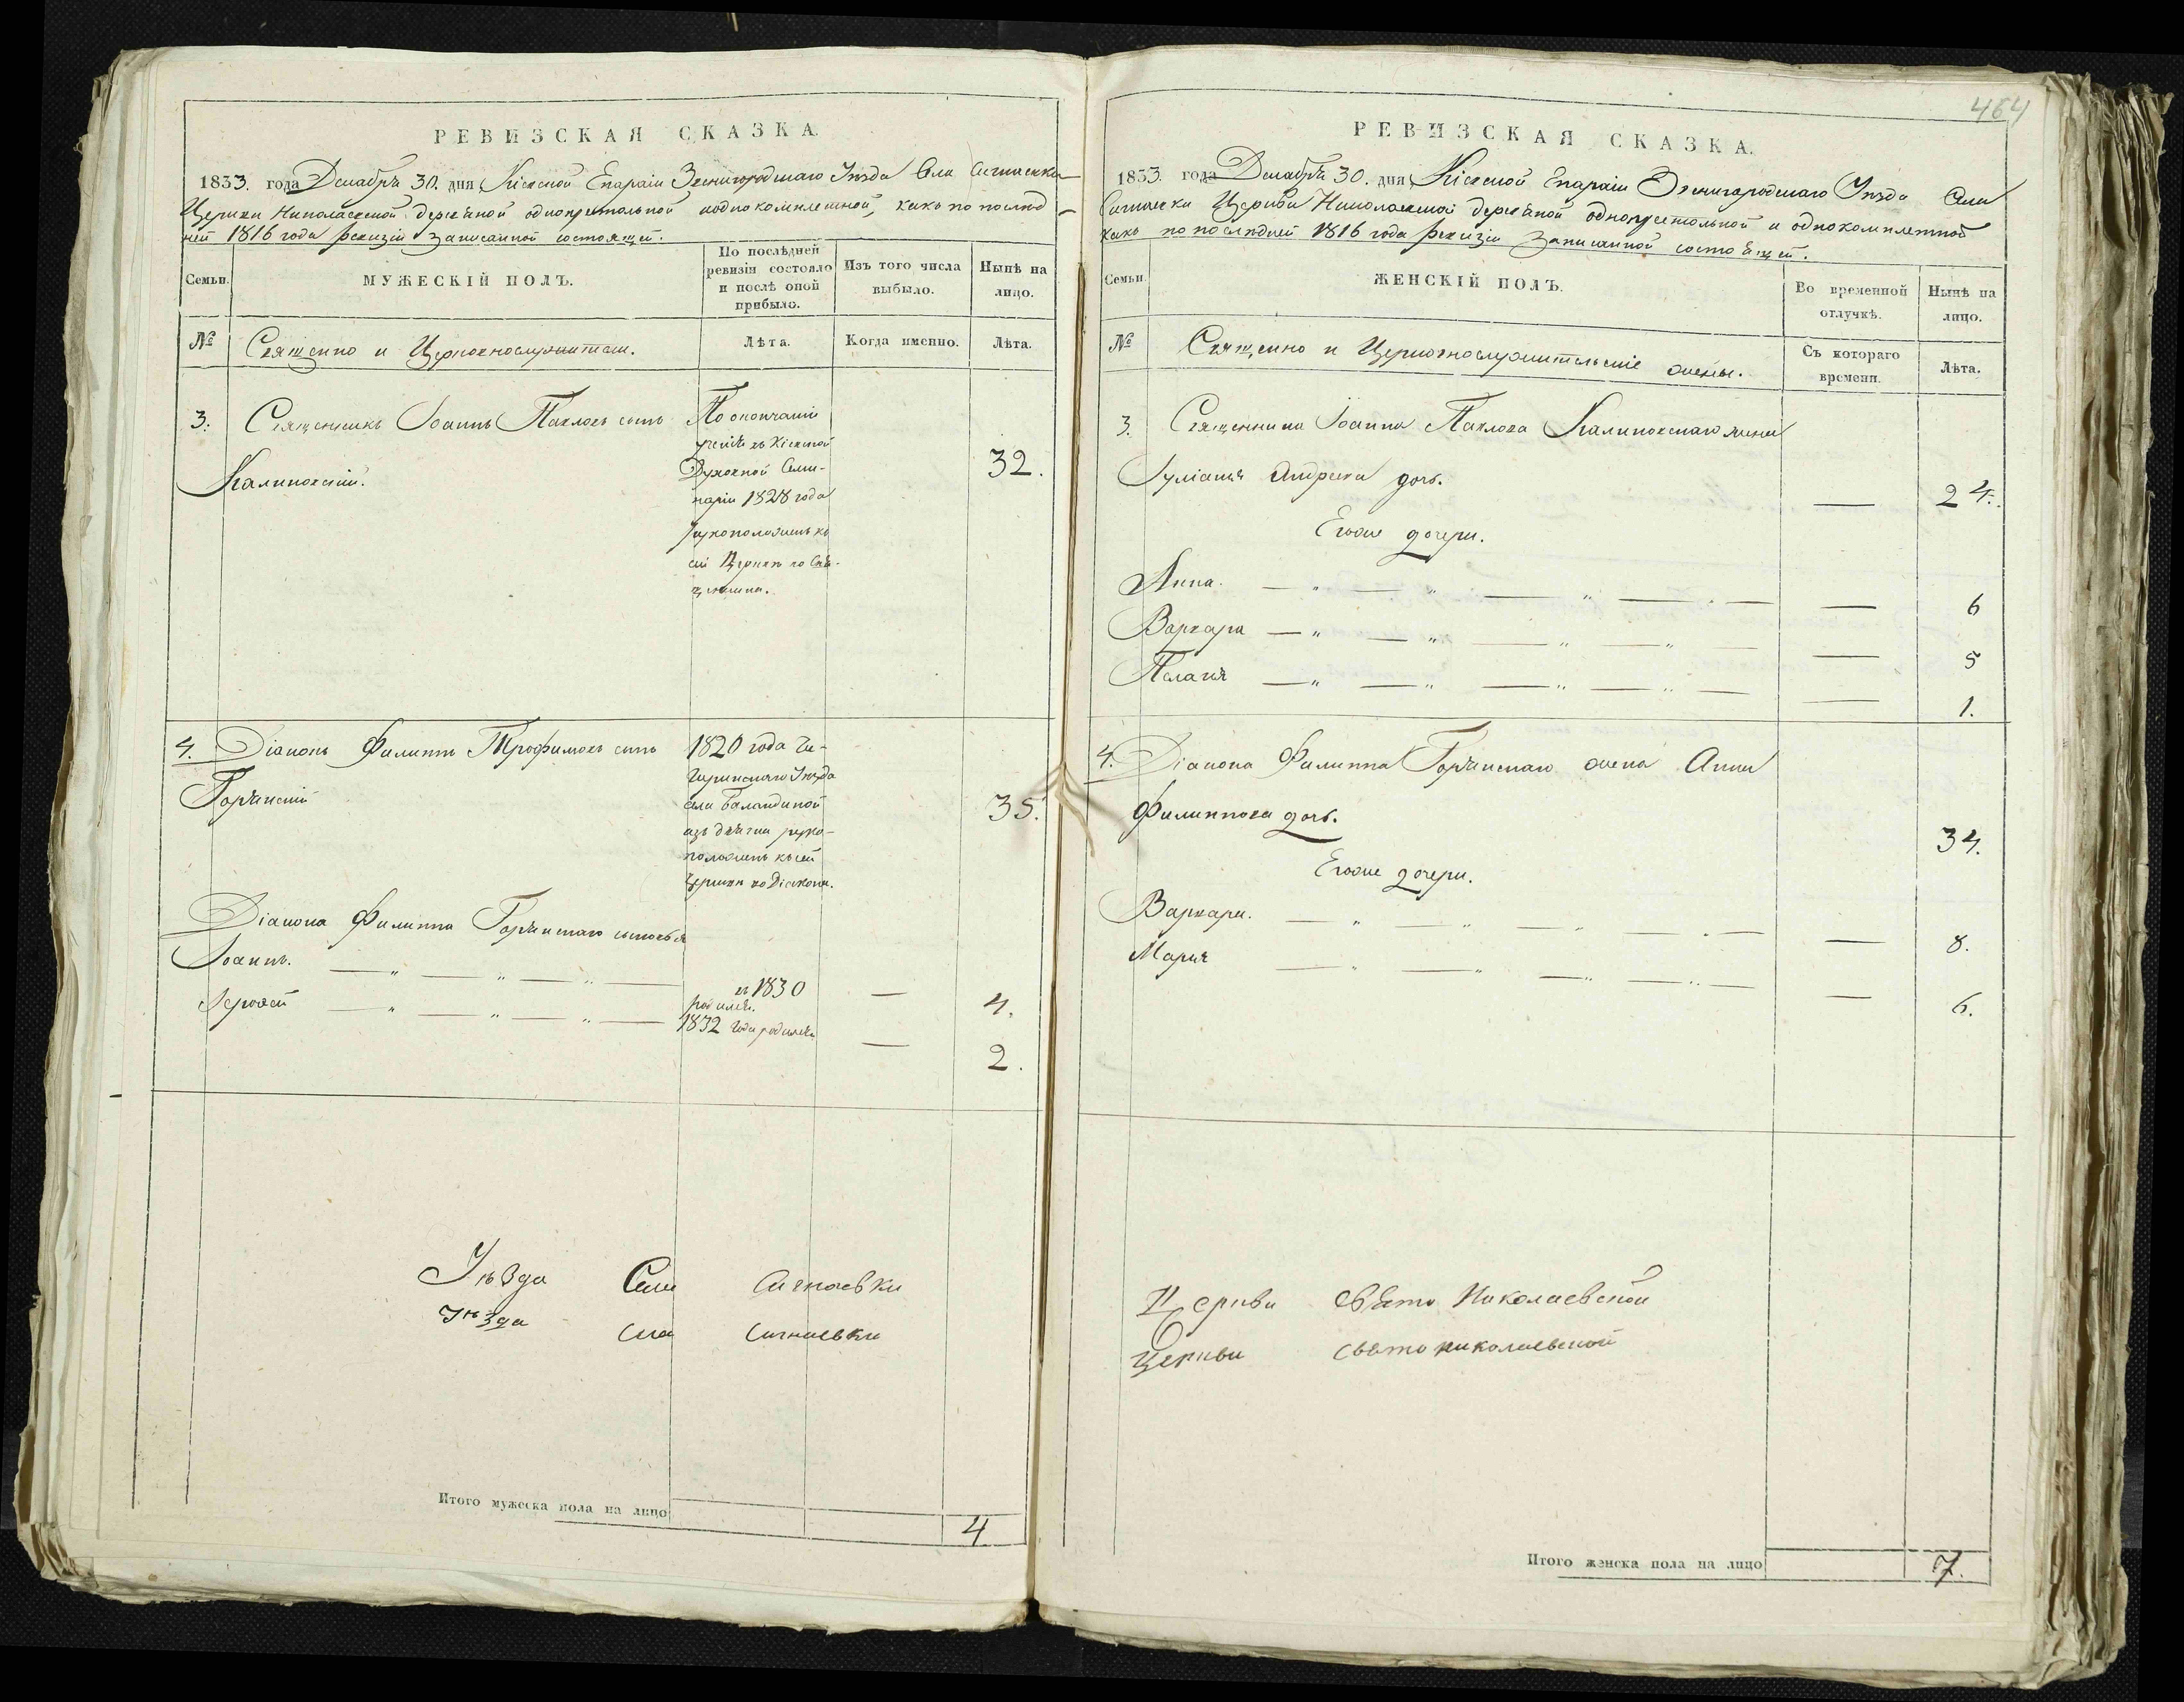 РЕВИЗСКАЯ СКАЗКА.
1833. года Декабря 30. дня Кіевской Епархіи Звенигородскаго Уѣзда Села Сигнаевки
Церкви Николаевской деревяной однопрестольной и однокомплетной, какъ по послѣд
ней 1816 года ревизіи записанной состоящей.
Семьи.
МУЖЕСКІЙ ПОЛЪ.
По послѣдней ревизіи состояло и послѣ оной прибыло.
Изъ того числа выбыло.
Нынѣ на лицо.
№
Священно и Церковнослужители.
Лѣта.
Когда именно.
Лѣта.
3. Священникъ Іоаннъ Павловъ сынъ
Калиновскій.
По окончаніи
ученія въ Кіевской
Духовной Семи-
наріи 1828 года
рукоположенъ къ
сей Церкви во Свя-
щенника.
32.
4. Діаконъ Филиппъ Трофимовъ сынъ
Горянскій
1820 года Чи-
гиринскаго Уѣзда
села Баландиной
изъ дьячка руко-
положенъ къ сей
Церкви во Діакона.
35.
Діакона Филиппа Горянскаго сыновья
Іоаннъ. — " — " — " —
въ 1830
родился.
— 4.
Іерофей — " — " — " —
1832 года родился
— 2.
Уѣзда Села Сигнаевки
Уѣзда Села Сигнаевки
Итого мужеска пола на лицо 4
464
РЕВИЗСКАЯ СКАЗКА.
1833. года Декабря 30. дня Кіевской Епархіи Звенигородскаго Уѣзда Села
Сигнаевки Церкви Николаевской деревяной однопрестольной и однокомплетной
какъ по послѣдней 1816 года ревизіи записанной состоящей.
Семьи.
ЖЕНСКІЙ ПОЛЪ.
Во временной отлучкѣ.
Нынѣ на лицо.
№
Священно и Церковнослужительскіе жены.
Съ котораго времени.
Лѣта.
3. Священника Іоанна Павлова Калиновскаго жена
Іуліанія Андреева дочь. — 24.
Егоже дочери.
Анна. — " — " — " — " — — 6
Варвара — " — " — " — " — — 5
Пелагия — " — " — " — " — — 1.
4. Діакона Филиппа Горянскаго жена Анна
Филиппова дочь. 34.
Егоже дочери.
Варвара. — " — " — " — " — — 8.
Мария — " — " — " — " — — 6.
Церкви Свято Николаевской
Церкви Свято николаевской
Итого женска пола на лицо 7.